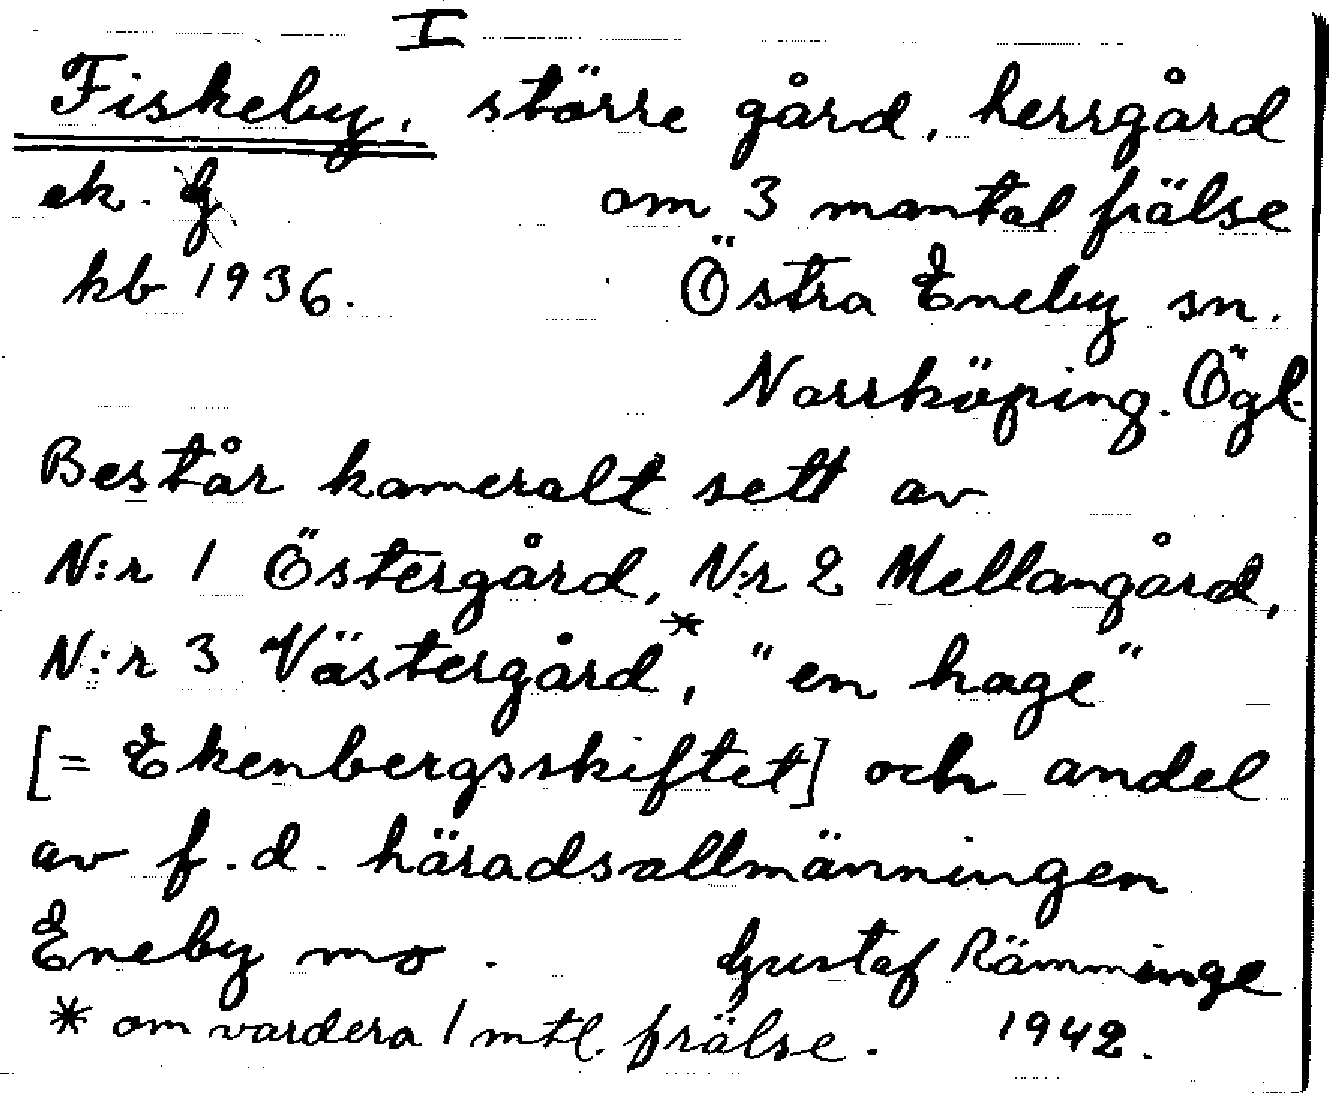 I
Fiskeby, större gård, herrgård
ek. G om 3 mantal frälse
kb 1936. Östra Eneby sn.
Norrköping. Ögl.
Består kameralt sett av
N:r 1 Östergård, N:r 2 Mellangård,
N:r 3 Västergård*, "en hage"
[= Ekenbergsskiftet] och andel
av f.d. häradsallmänningen
Eneby mo. Gustaf Rämminge
* om vardera 1 mtl. frälse. 1942.